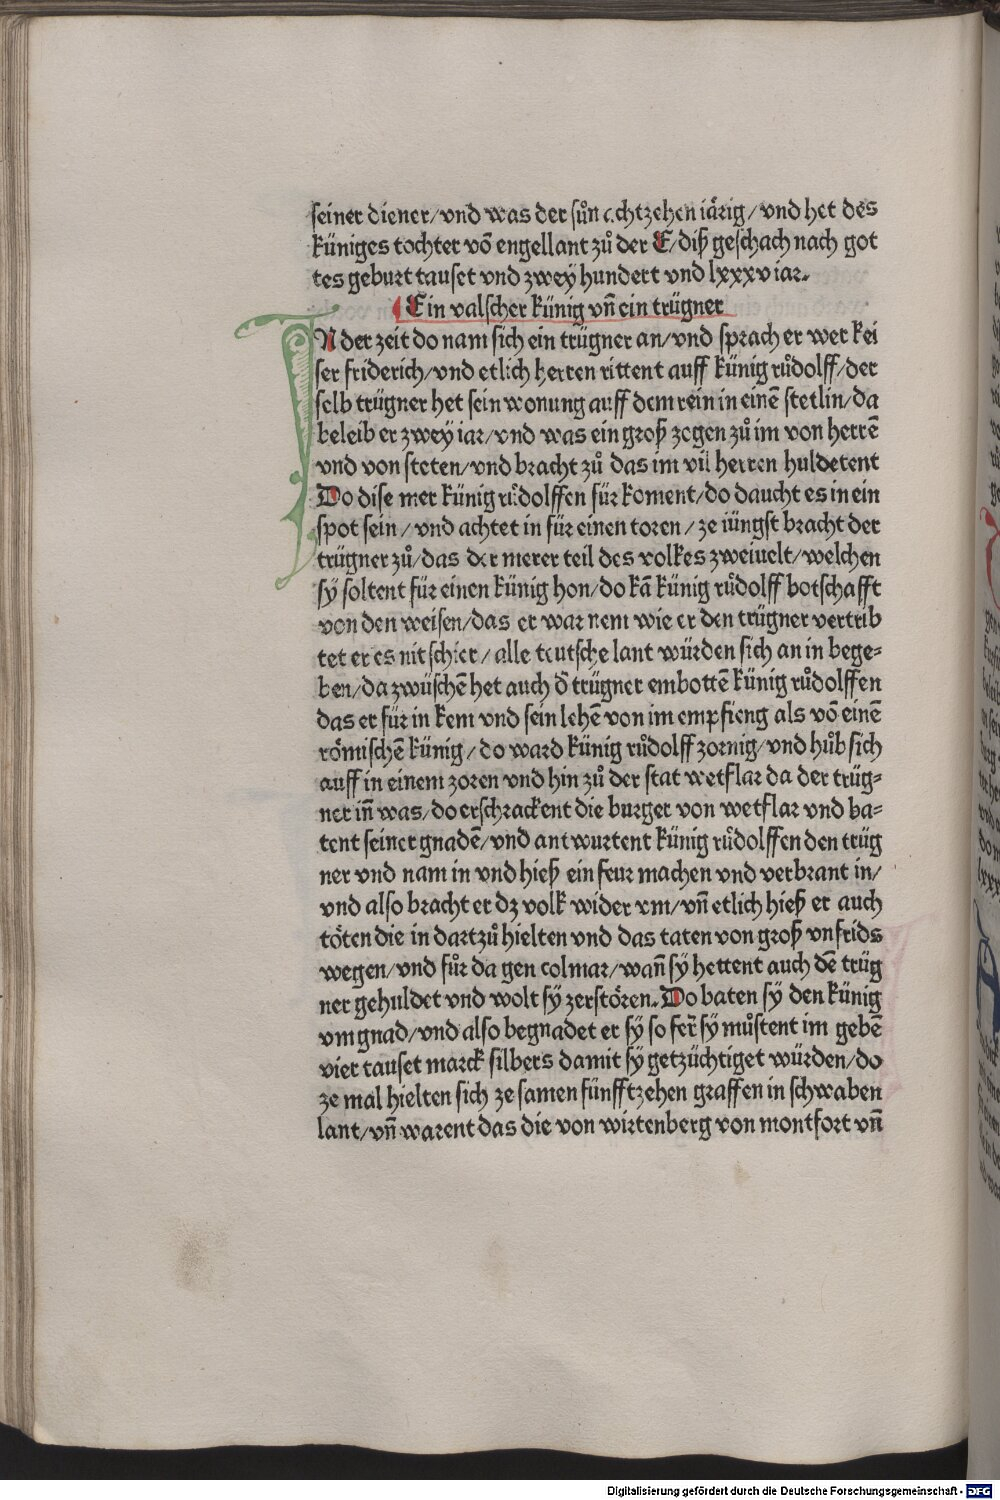 seiner diener/vnd was der sůn achtzehen iårig/vnd het des
küniges tochter võ engellant zů der E/diß geschach nach got
tes geburt tauset vnd zwey hundert vnd lxxxv iar.
Ein valscher künig vñ ein trügner
IN der zeit do nam sich ein trügner an/vnd sprach er wer kei
ser friderich/vnd etlich herren rittent auff künig růdolff/der
selb trügner het sein wonung auff dem rein in einẽ stetlin/da
beleib er zwey iar/vnd was ein groß zogen zů im von herrẽ
vnd von steten/vnd bracht zů das im vil herren huldetent
Do dise mer künig růdolffen für koment/do daucht es in ein
spot sein/vnd achtet in für einen toren/ze iüngst bracht der
trügner zů/das der merer teil des volkes zweiuelt/welchen
sy soltent für einen künig hon/do kã künig růdolff botschafft
von den weisen/das er war nem wie er den trügner vertrib
tet er es nit schier/alle teutsche lant würden sich an in bege=
ben/da zwüschẽ het auch d̃ trügner embottẽ künig růdolffen
das er für in kem vnd sein lehẽ von im empfieng als võ einẽ
römischẽ künig/do ward künig růdolff zornig/vnd hůb sich
auff in einem zoren vnd hin zů der stat wetflar da der trüg=
ner iñ was/do erschrackent die burger von wetflar vnd ba=
tent seiner gnadẽ/vnd antwurtent künig růdolffen den trüg
ner vnd nam in vnd hieß ein feur machen vnd verbrant in/
vnd also bracht er dz volk wider vm/vñ etlich hieß er auch
töten die in dartzů hielten vnd das taten von groß vnfrids
wegen/vnd fůr da gen colmar/wañ sy hettent auch dẽ trüg
ner gehuldet vnd wolt sy zerstören. Do baten sy den künig
vm gnad/vnd also begnadet er sy so fer̃ sy můstent im gebẽ
vier tauset marck silbers damit sy getzüchtiget würden/do
ze mal hielten sich ze samen fünfftzehen graffen in schwaben
lant/vñ warent das die von wirtenberg von montfort vñ
Digitalisierung gefördert durch die Deutsche Forschungsgemeinschaft - DFG